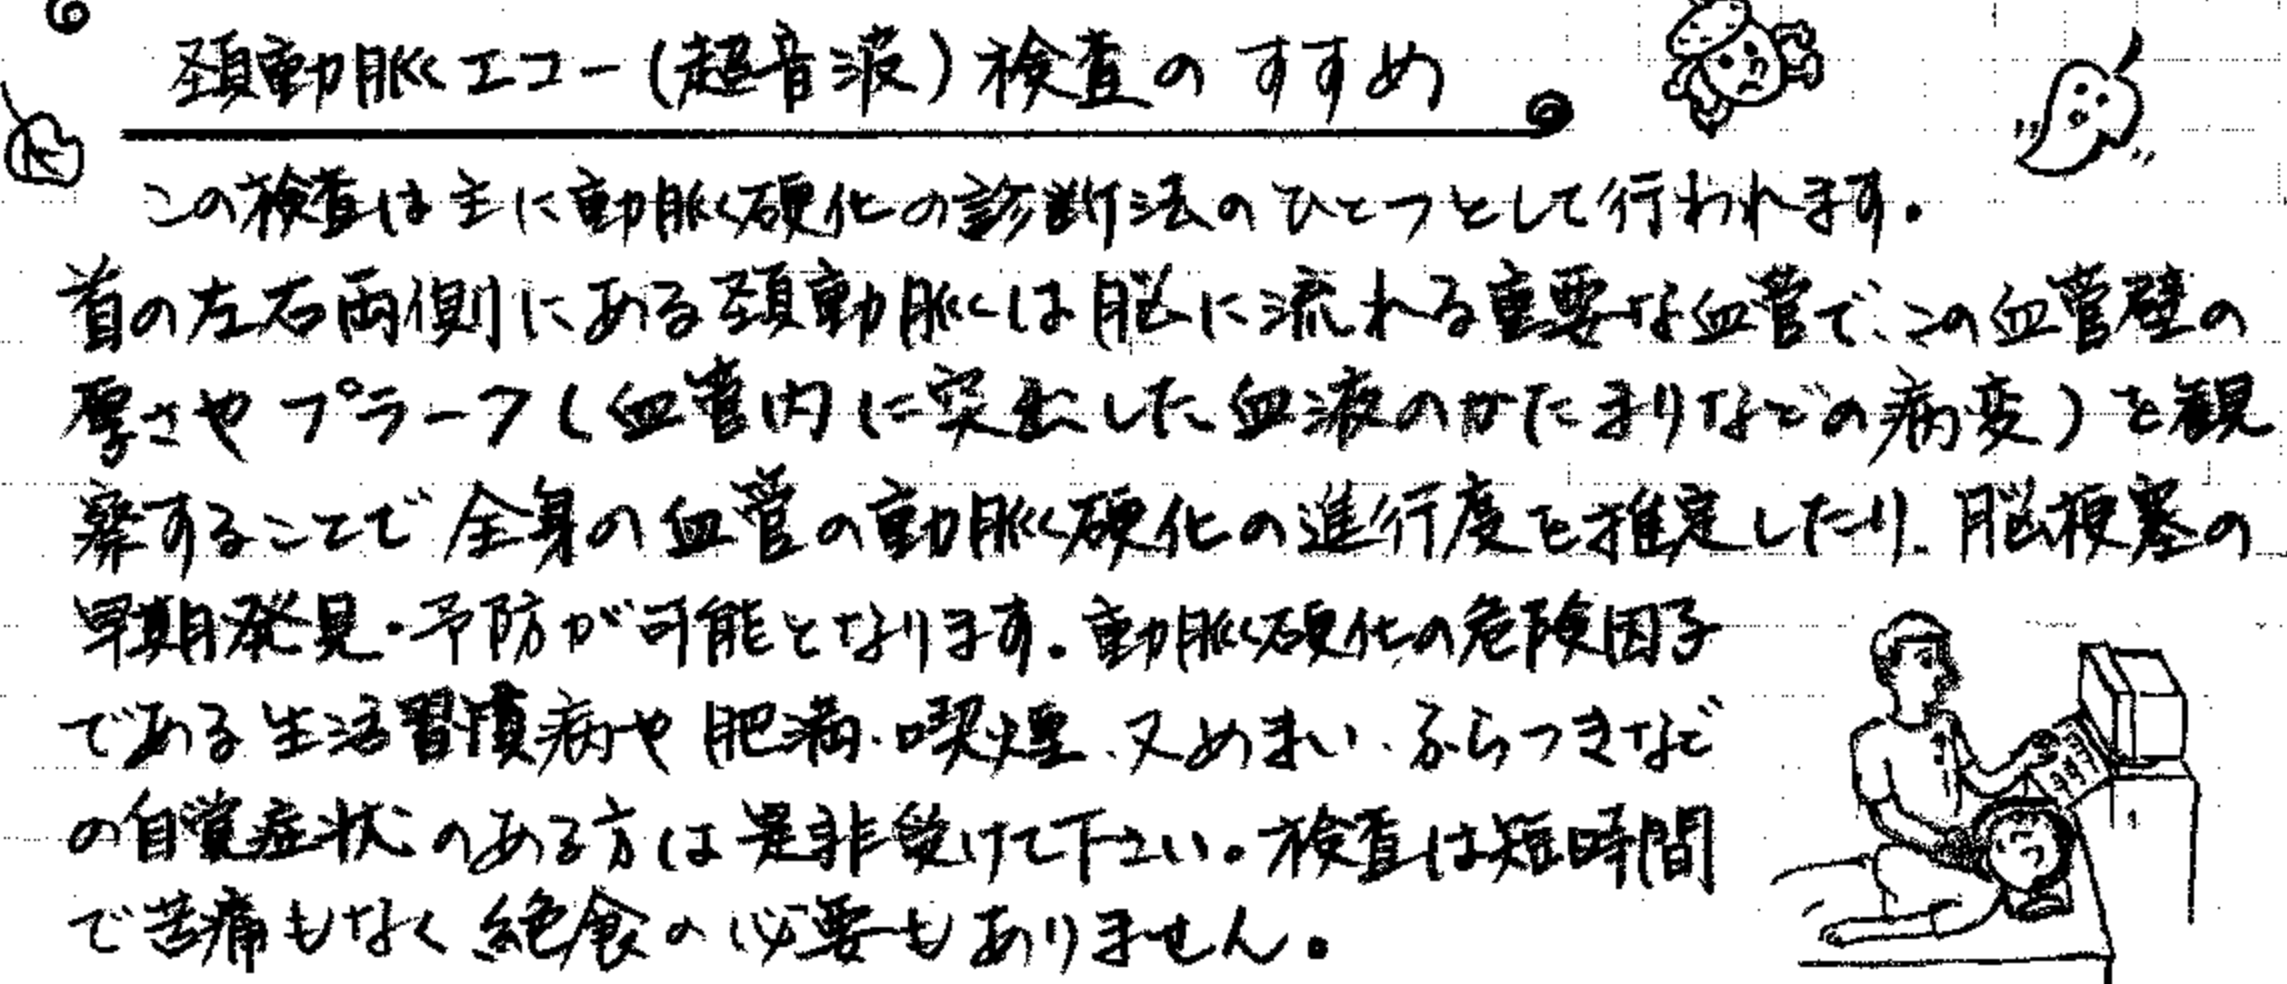 頚動脈エコー(超音波)検査のすすめ
この検査は主に動脈硬化の診断法のひとつとして行われます。
首の左右両側にある頚動脈は脳に流れる重要な血管で、この血管壁の
厚さやプラーク(血管内に突出した血液のかたまりなどの病変)を観
察することで全身の血管の動脈硬化の進行度を推定したり、脳梗塞の
早期発見・予防が可能となります。動脈硬化の危険因子
である生活習慣病や肥満、喫煙、又めまい、ふらつきなど
の自覚症状のある方は是非受けて下さい。検査は短時間
で苦痛もなく絶食の必要もありません。